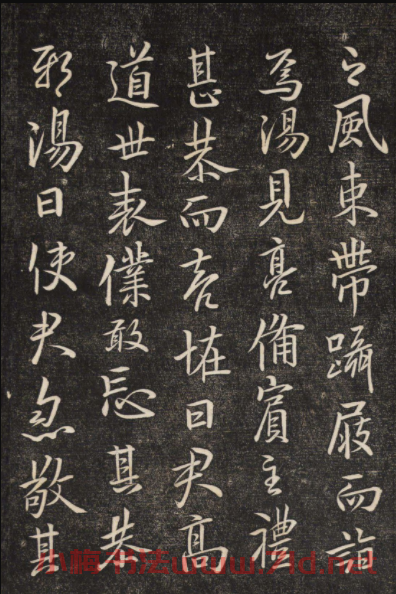 之風束帶躡屐而詣
焉湯見亮備賓主禮
甚恭而曰君高
道世表僕敢忘其恭
邪湯曰使君忽敬其
小梅书法www.71d.net